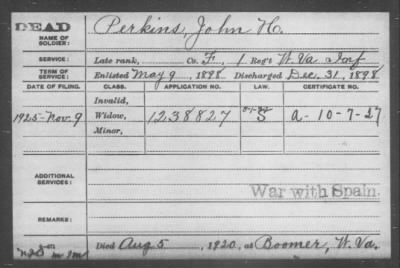 DEAD
NAME OF SOLDIER: Perkins, John H.
SERVICE: Late rank, Co. F, 1 Reg't W. Va Inf
TERM OF SERVICE: Enlisted May 9, 1898 Discharged Dec. 31, 1898
DATE OF FILING. CLASS. APPLICATION NO. LAW. CERTIFICATE NO.
Invalid,
1925-Nov. 9 Widow, 1238827 S A-10-7-27
Minor,
ADDITIONAL SERVICES:
War with Spain.
REMARKS:
Died Aug 5, 1920, at Boomer, W. Va.